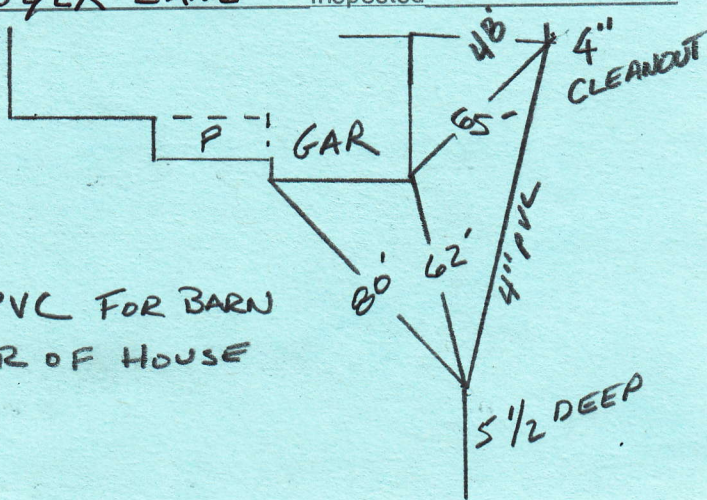 Inspected
48'
4"
CLEANOUT
65-
P
GAR
4" PVC
80'
62'
PVC FOR BARN
R OF HOUSE
5 1/2 DEEP